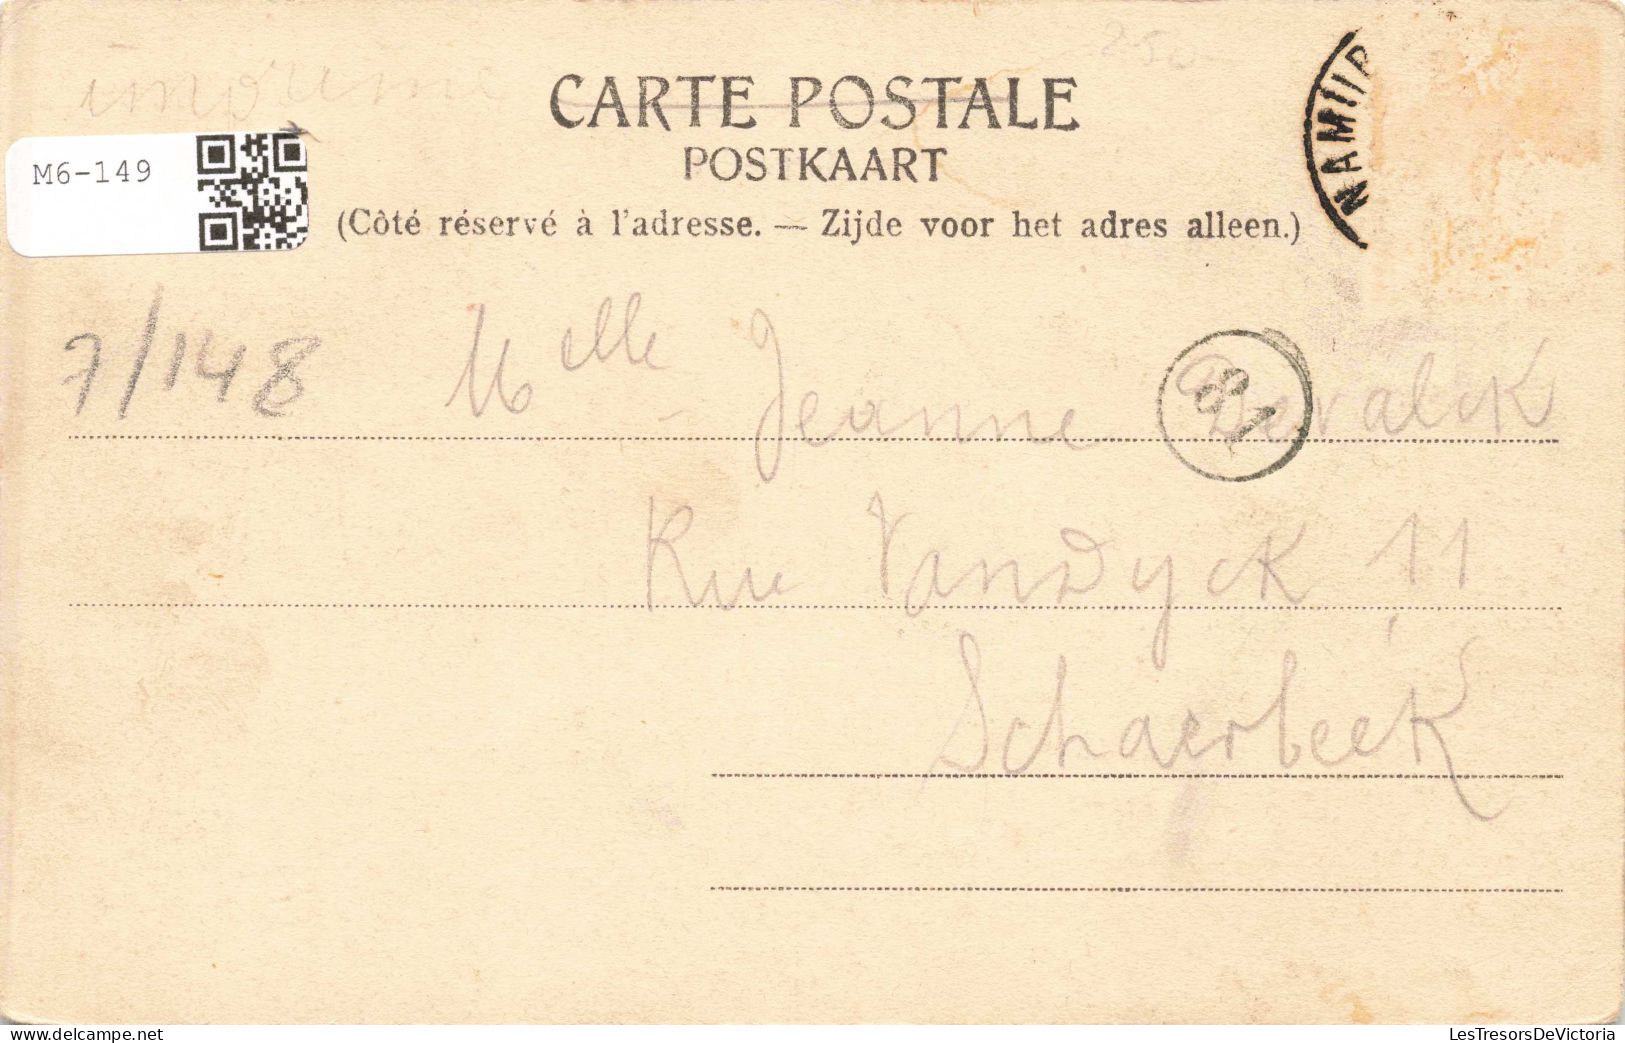 250
imprimé
CARTE POSTALE
POSTKAART
(Côté réservé à l'adresse. — Zijde voor het adres alleen.)
M6-149
NAMUR
7/148
Melle Jeanne Devalck
81
Rue VanDyck 11
Schaerbeek
LesTresorsDeVictoria